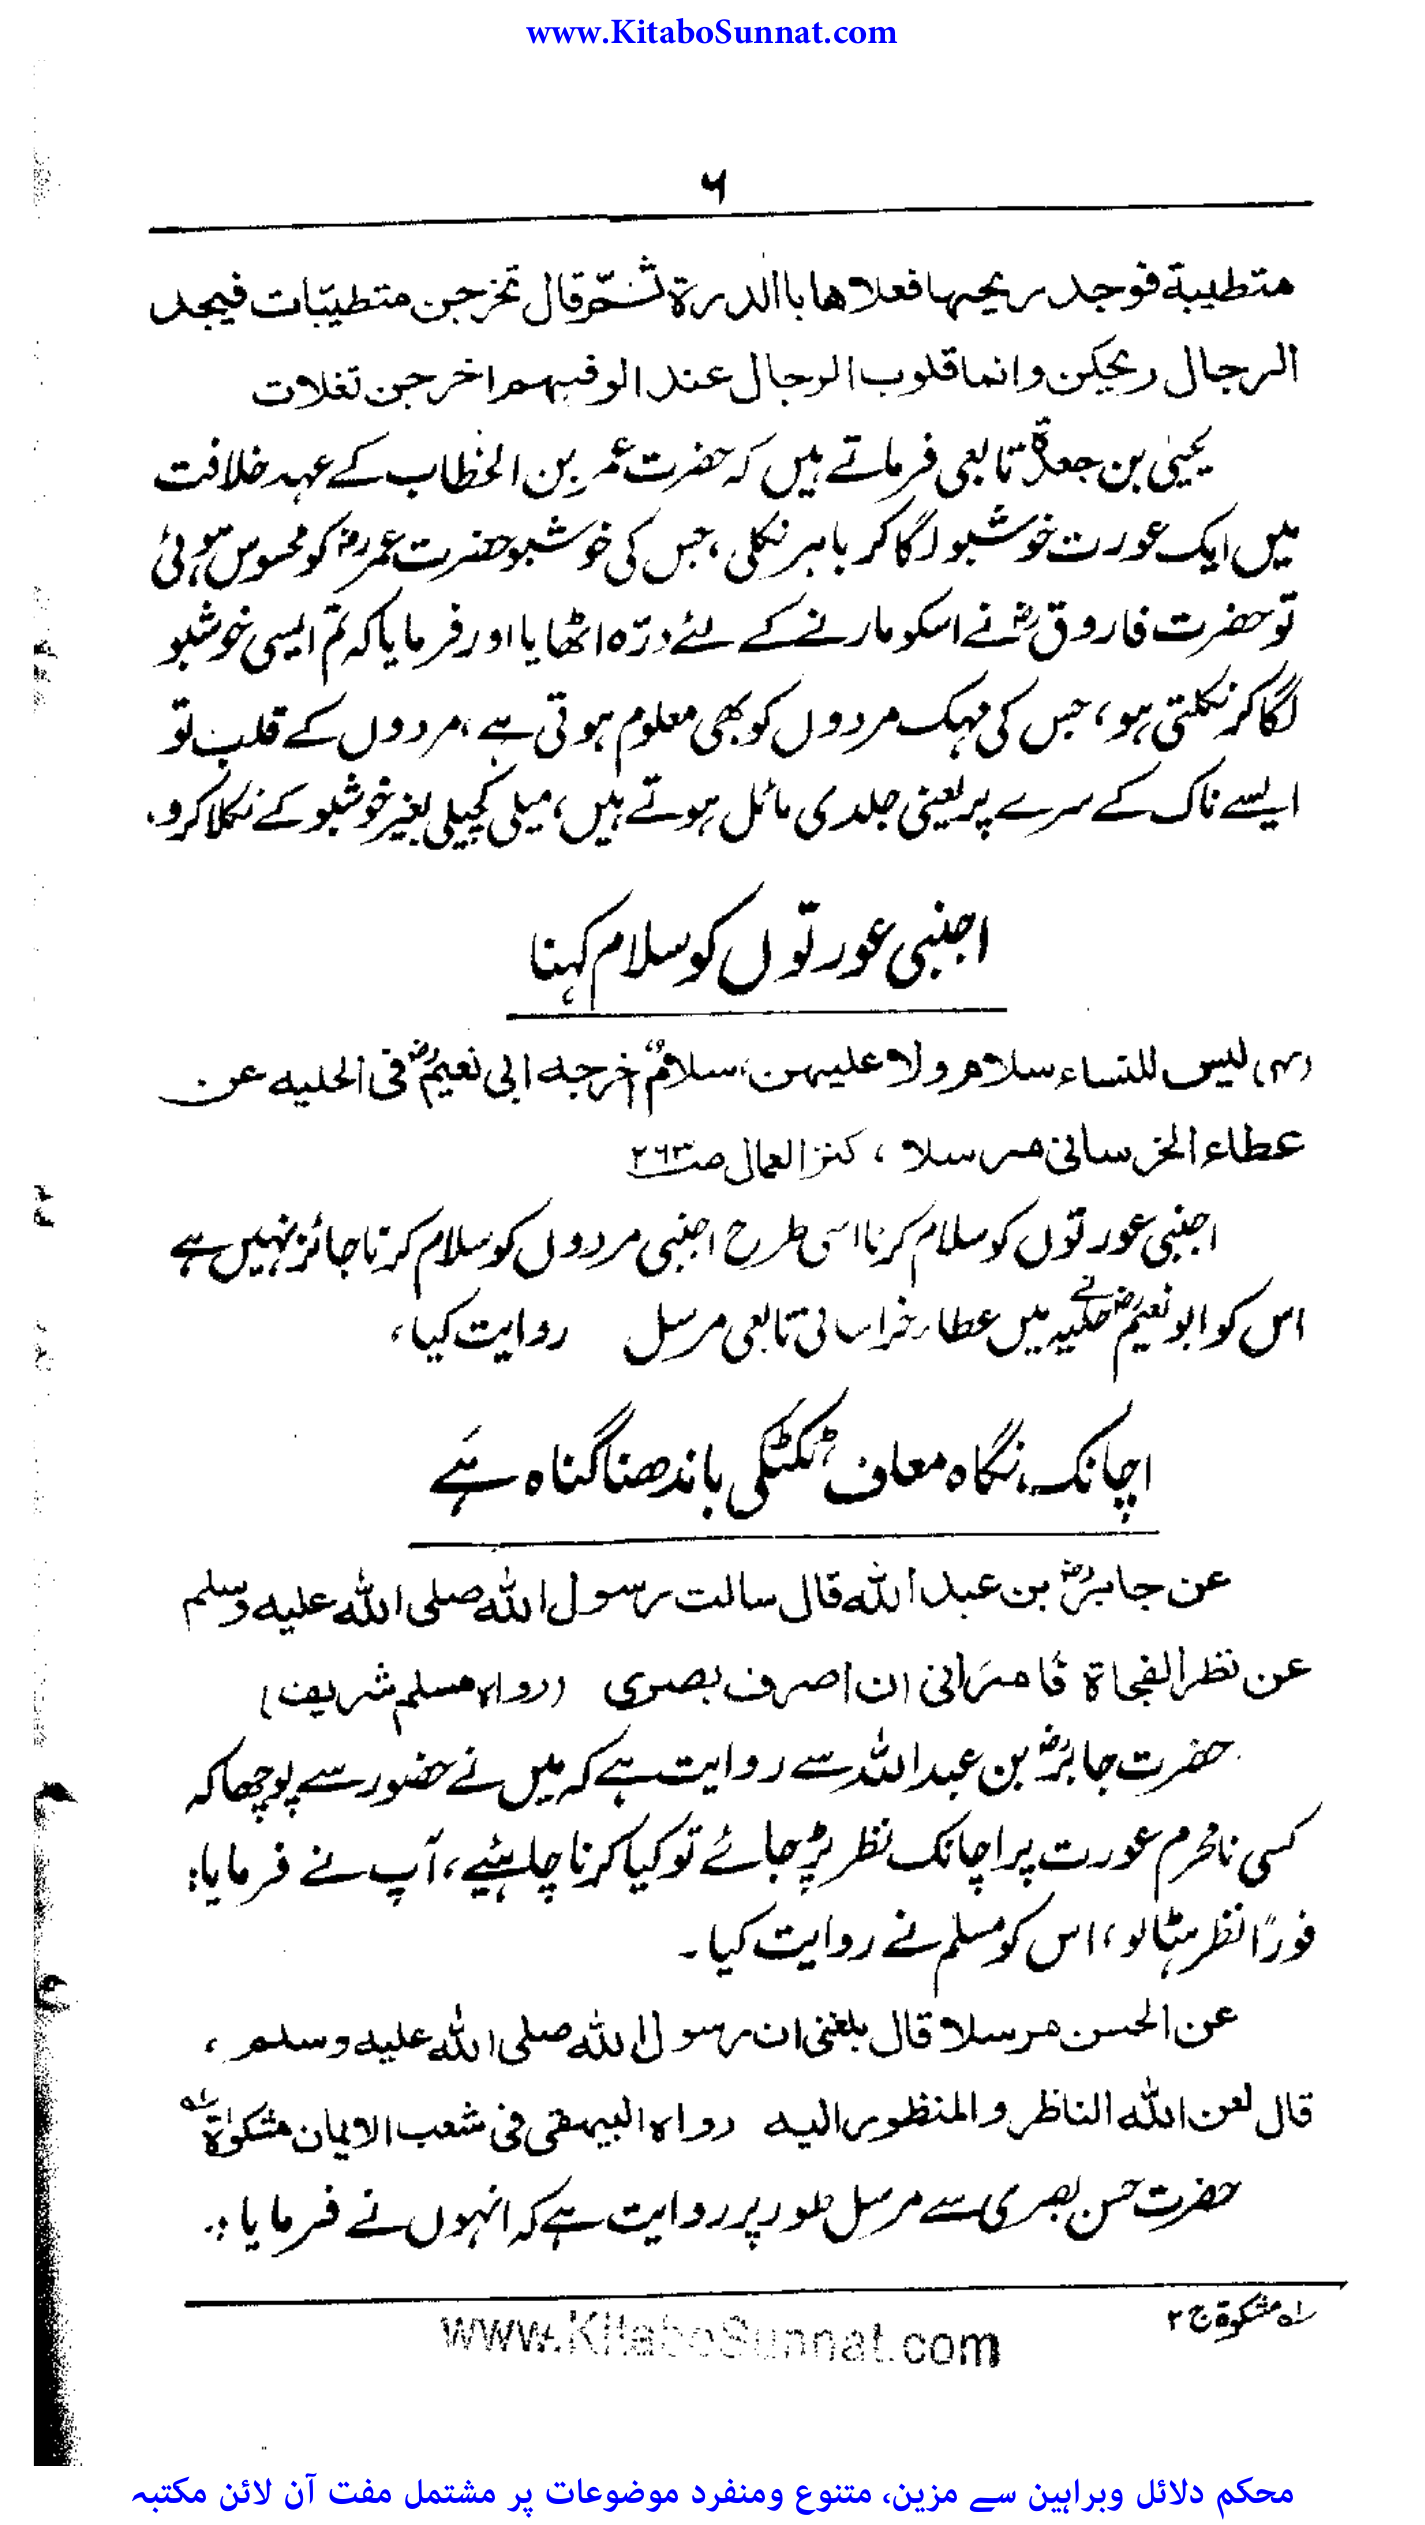 www.KitaboSunnat.com
۶
متطيبة فوجد ريحها فعلاها باالدرة ثم قال تخرجن متطيّبات فيجد
الرجال ريحكن وانما قلوب الرجال عند الوفيهم اخرجن تغلات
یحییٰ بن جعدۃ تابعی فرماتے ہیں کہ حضرت عمر بن الخطاب کے عہد خلافت
میں ایک عورت خوشبو لگا کر باہر نکلی، جس کی خوشبو حضرت عمرؓ کو محسوس ہوئی
تو حضرت فاروقؓ نے اسکو مارنے کے لئے درّہ اٹھایا اور فرمایا کہ تم ایسی خوشبو
لگا کر نکلتی ہو، جس کی مہک مردوں کو بھی معلوم ہوتی ہے، مردوں کے قلب تو
ایسے ناک کے سرے پر یعنی جلدی مائل ہوتے ہیں، میلی کچیلی بغیر خوشبو کے نکلا کرو،
اجنبی عورتوں کو سلام کہنا
(۴) ليس للنساء سلام ولا عليهن، سلامٌ اخرجه ابی نعیمؓ فی الحليه عن
عطاء الخرسانی مرسلا، کنز العمال ص۲۶۳
اجنبی عورتوں کو سلام کرنا اسی طرح اجنبی مردوں کو سلام کرنا جائز نہیں ہے
اس کو ابو نعیمؓ نے حلیہ میں عطار خراسانی تابعی مرسل روایت کیا،
اچانک نگاہ معاف ٹکٹکی باندھنا گناہ ہَے
عن جابرؓ بن عبد الله قال سالت رسول الله صلی الله علیه وسلم
عن نظر الفجاة فامرَانی ان اصرف بصری (رواہ مسلم شریف)
حضرت جابرؓ بن عبد اللہ سے روایت ہے کہ میں نے حضور سے پوچھا کہ
کسی نامحرم عورت پر اچانک نظر پڑ جائے تو کیا کرنا چاہئیے، آپ نے فرمایا:
فورًا نظر ہٹا لو، اس کو مسلم نے روایت کیا۔
عن الحسن مرسلا قال بلغنی ان رسول الله صلی الله علیه وسلم،
قال لعن الله الناظر والمنظور الیه رواہ البیهقی فی شعب الایمان مشکوٰة لہ
حضرت حسن بصری سے مرسل طور پر روایت ہے کہ انہوں نے فرمایا:۔
لہ مشکوة ج ۲
www.KitaboSunnat.com
محکم دلائل وبراہین سے مزین، متنوع ومنفرد موضوعات پر مشتمل مفت آن لائن مکتبہ